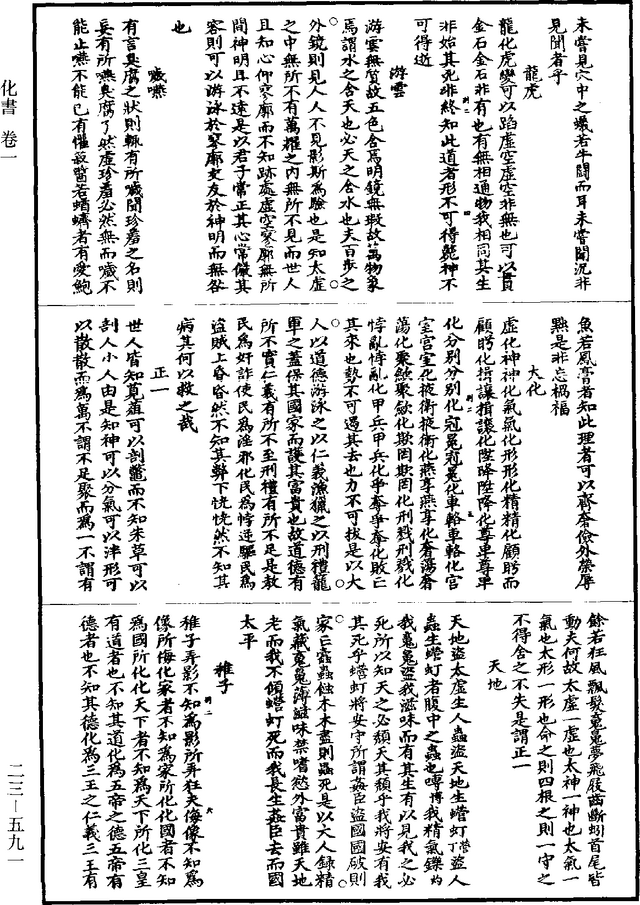 化書 卷一
二三—五九一
未嘗見穴中之蟻若牛鬪而耳未嘗聞況非
見聞者乎
龍虎
龍化虎變可以蹈虛空虛空非無也可以貫
金石金石非有也有無相通物我相同其生
非始其死非終知此道者形不可得斃神不
可得逝
游雲
游雲無質故五色含焉明鏡無瑕故萬物象
焉謂水之含天也必天之含水也夫百步之
外鏡則見人人不見影斯為驗也是知太虛
之中無所不有萬耀之內無所不見而世人
且知心仰寥廓而不知跡處虛空寥廓無所
間神明且不遠是以君子常正其心常儼其
容則可以游泳於寥廓交友於神明而無咎
也
噦嚥
有言臭腐之狀則輒有所噦聞珍羞之名則
妄有所嚥臭腐了然虛珍羞必然無而噦不
能止嚥不能已有懼菽醬若蝤蠐者有愛鮑
魚若鳳膏者知此理者可以齊奢儉外榮辱
黜是非忘禍福
大化
虛化神神化氣氣化形形化精精化顧眄而
顧眄化揖讓揖讓化陞降陞降化尊卑尊卑
化分別分別化冠冕冠冕化車輅車輅化宮
室宮室化掖衛掖衛化燕享燕享化奢蕩奢
蕩化聚斂聚斂化欺罔欺罔化刑戮刑戮化
悖亂悖亂化甲兵甲兵化爭奪爭奪化敗亡
其來也勢不可遏其去也力不可拔是以大
人以道德游泳之以仁義漁獵之以刑禮籠
罩之蓋保其國家而護其富貴也故道德有
所不實仁義有所不至刑禮有所不足是教
民為奸詐使民為淫邪化民為悖逆驅民為
盜賊上昏昏然不知其弊下恍恍然不知其
病其何以救之哉
正一
世人皆知莧䔢可以剖鱉而不知朱草可以
剖人小人由是知神可以分氣可以泮形可
以散散而為萬不謂不足聚而為一不謂有
餘若狂風飄髮魂魄夢飛屐齒斷蚓首尾皆
動夫何故太虛一虛也太神一神也太氣一
氣也太形一形也命之則四根之則一守之
不得舍之不失是謂正一
天地
天地盜太虛生人蟲盜天地生蟯蚘盜人
蟲生蟯蚘者腹中之蟲也嘬我精氣鑠
我魂魄盜我滋味而有其生有以見我之必
死所以知天之必頹天其頹乎我將安有我
其死乎蟯蚘將安守所謂姦臣盜國國破則
家亡蠹蟲蝕木木盡則蟲死是以大人錄精
氣藏魂魄薄滋味禁嗜慾外富貴雖天地
老而我不傾蟯蚘死而我長生姦臣去而國
太平
稚子
稚子弄影不知為影所弄狂夫侮像不知為
像所侮化家者不知為家所化化國者不知
為國所化化天下者不知為天下所化三皇
有道者也不知其道化為五帝之德五帝有
德者也不知其德化為三王之仁義三王有